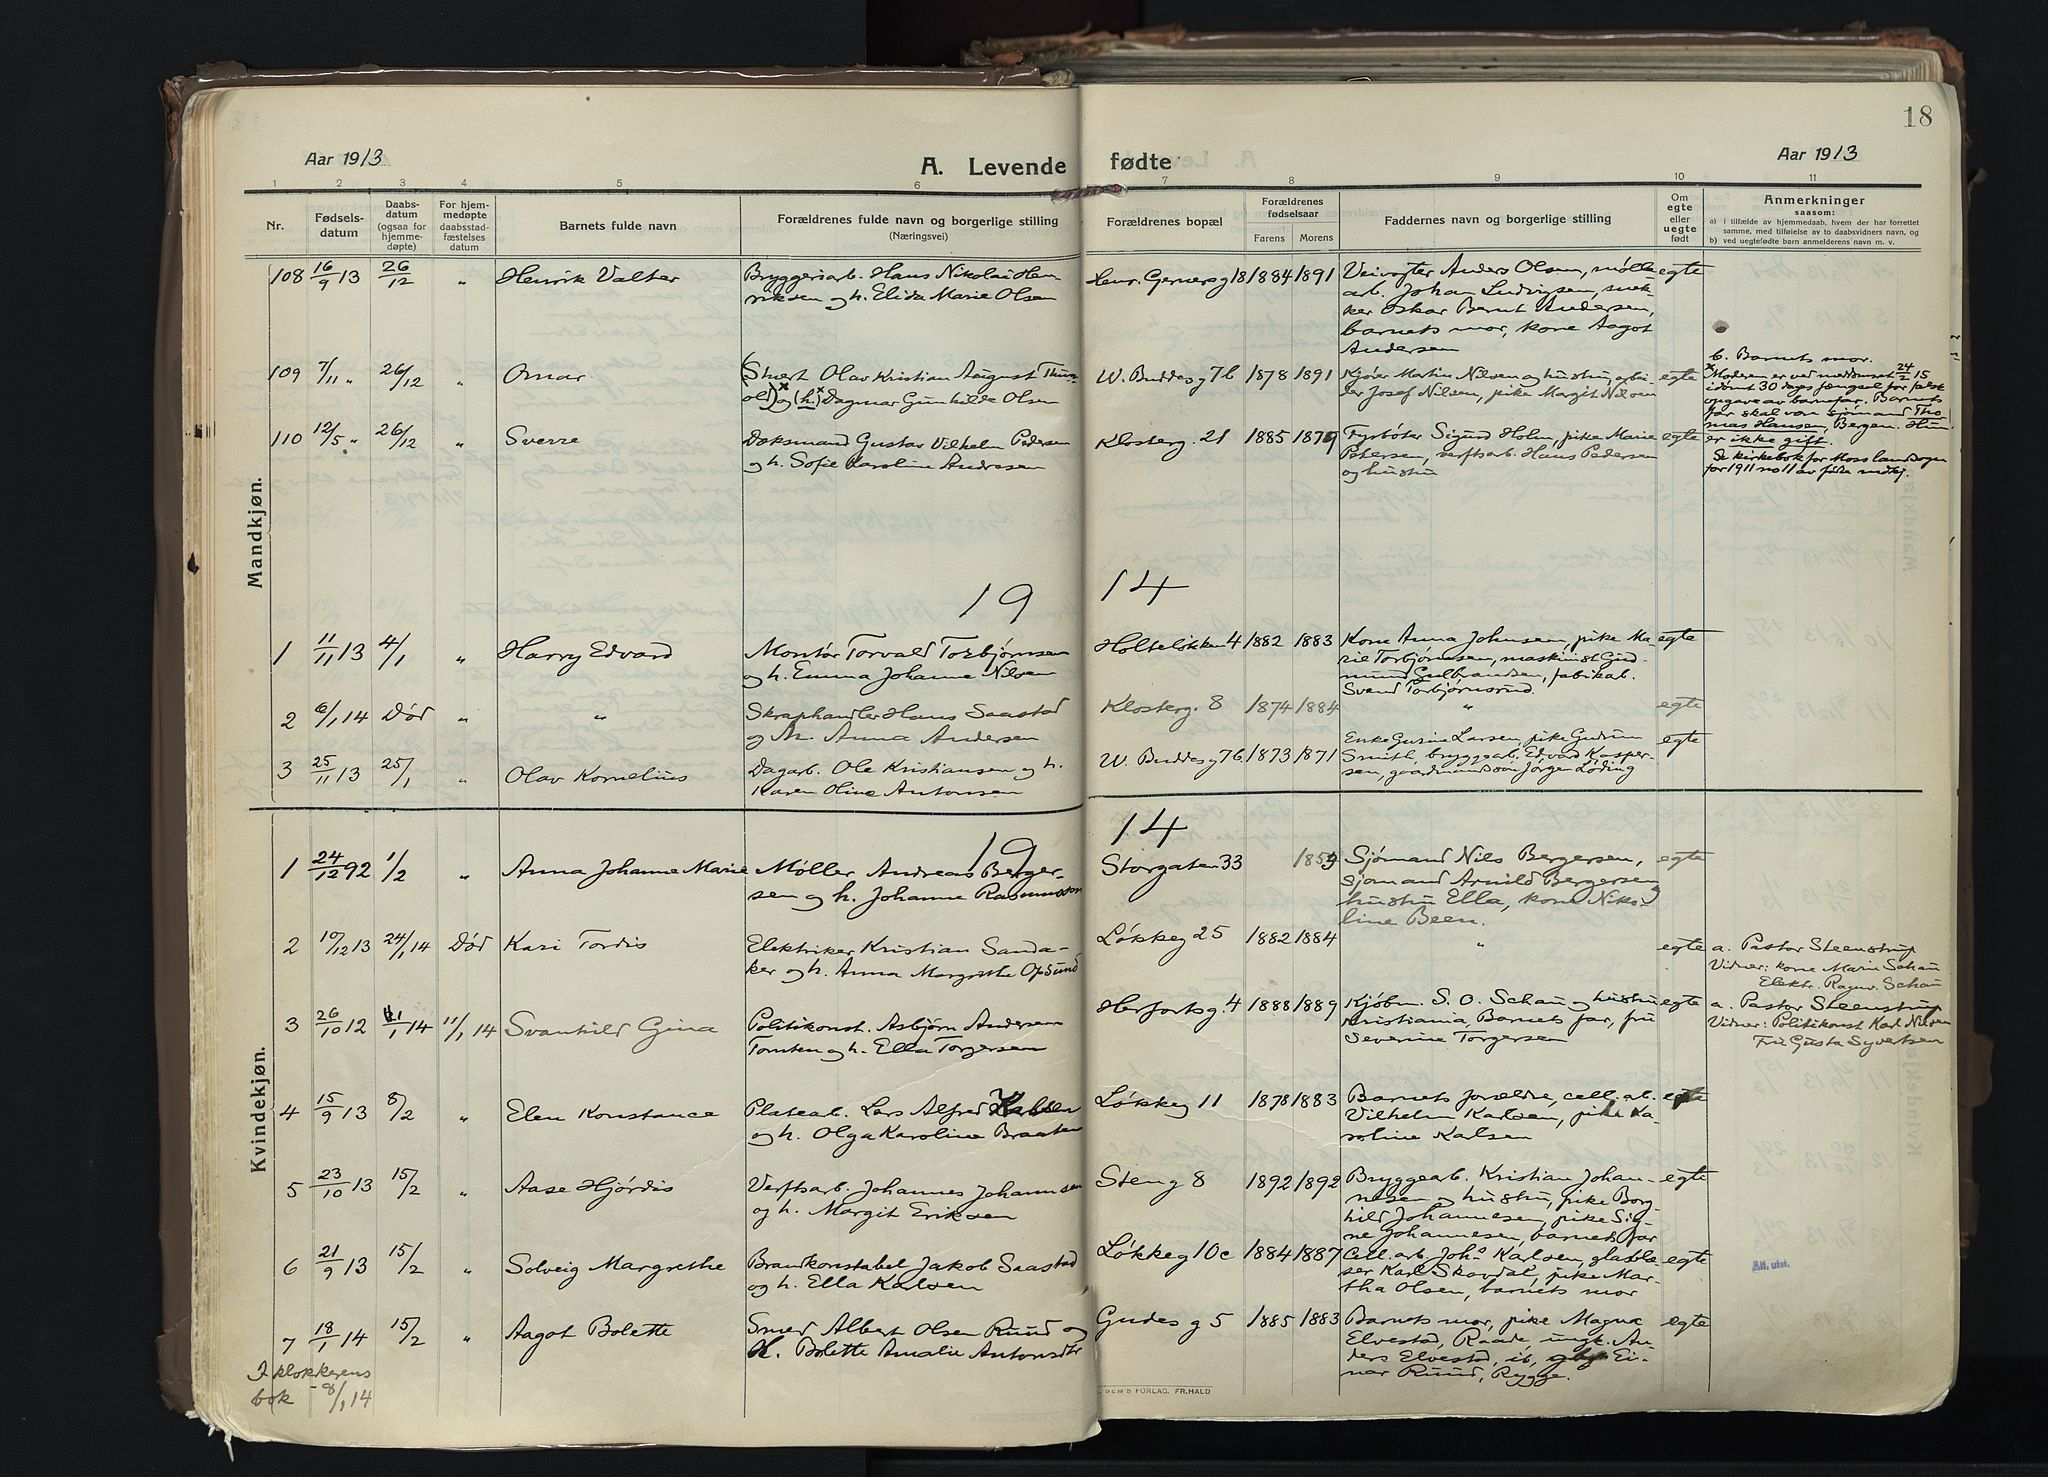 18
Aar 1913
A. Levende fødte
Aar 1913
1 2 3 4 5 6 7 8 9 10 11
Nr.
Fødsels-
datum
Daabs-
datum
(ogsaa for
hjemme-
døpte)
For hjem-
medøpte
daabsstad-
fæstelses
datum
Barnets fulde navn
Forældrenes fulde navn og borgerlige stilling
(Næringsvei)
Forældrenes bopæl
Forældrenes
fødselsaar
Farens Morens
Faddernes navn og borgerlige stilling
Om
egte
eller
uegte
født
Anmerkninger
saasom:
a) i tilfælde av hjemmedaab, hvem der har forrettet
samme, med tilføielse av to daabsvidners navn, og
b) ved uegtefødte barn anmelderens navn m. v.
Mandkjøn.
108 16/9 13 26/12 " Henrik Valter
Bryggeriarb. Hans Nikolai Hen-
riksen og h. Elida Marie Olsen
Henr. Gerners g 18 1884 1891
Veivogter Anders Olsen, mølle-
arb. Johan Ludvigsen, snek-
ker Oskar Bernt Andersen,
barnets mor, kone Aagot
Andersen
egte
109 7/11 " 26/12 " Omar
(Stuert Olav Kristian August Thun-
old)x og (h.)x Dagmar Gunhilde Olsen
W. Buddes g 7b 1878 1891
Kjører Martin Nilsen og hustru, arbei-
der Josef Nilsen, pike Margit Nilsen
egte
b. Barnets mor.
x Moderen er ved meddomsret 24/2 15
idømt 30 dages fængsel for falsk
opgave av barnefar. Barnets
far skal være sjømand Tho-
mas Hansen, Bergen. Hun
er ikke gift.
Se kirkebok for Moss landsogn
for 1911 no 11 av
110 12/5 " 26/12 " Sverre
Dæksmand Gustav Vilhelm Pedersen
og h. Sofie Karoline Andresen
Klosterg. 21 1885 1879
Fyrbøter Sigurd Holm, pike Marie
Petersen, verftsarb. Hans Pedersen
og hustru
egte
19 14
1 11/11 13 4/1 " Harry Edvard
Montør Torvald Torbjørnsen
og h. Emma Johanne Nilsen
Holteløkken 4 1882 1883
Kone Anna Johnsen, pike Ma-
rie Torbjørnsen, maskinist Gud-
mund Gulbrandsen, fabrikarb.
Svend Torbjørnsrud.
egte
2 6/1 14 Død " "
Skraphandler Hans Saastad
og h. Anna Andersen
Klosterg. 8 1874 1884 " egte
3 25/11 13 25/1 " Olav Kornelius
Dagarb. Ole Kristiansen og h.
Karen Oline Antonsen
W. Buddes g 7b 1873 1871
Enke Gusine Larsen, pike Gudrun
Smith, bryggearb. Edvard Kasper-
sen, gaardmandssøn Jørgen Løding
egte
Kvindekjøn.
19 14
1 24/12 92 1/2 " Anna Johanne Marie
Møller Andreas Berger-
sen og h. Johanne Rasmussen
Storgaten 33 1859
Sjømand Nils Bergersen,
sjømand Arnild Bergersen og
hustru Ella, kone Niko-
line Been.
egte
2 10/12 13 24/1 14 Død Kari Tordis
Elektriker Kristian Sanda-
ker og h. Anna Margrethe Opsund
Løkkeg 25 1882 1884 " egte
a. Pastor Steenstrup
Vidner: kone Marie Schau
Elektr. Ragnv. Schau
3 26/10 12 11/1 14 11/1 14 Svanhild Gina
Politikonst. Asbjørn Andersen
Tomten og h. Ella Torgersen
Herfortsg. 4 1888 1889
Kjøbm. S. O. Schau og hustru
Kristiania, Barnets far, fru
Severine Torgersen
egte
a. Pastor Steenstrup
Vidner: Politikonst Karl Nilsen
Fru Gusta Syvertsen
4 15/9 13 8/2 " Elen Konstance
Platearb. Lars Alfred Karlsen
og h. Olga Karoline Braaten
Løkkeg 11 1878 1883
Barnets forældre, cell. arb.
Vilhelm Karlsen, pike Ka-
roline Karlsen
egte
5 23/10 13 15/2 " Aase Hjørdis
Verftsarb. Johannes Johannsen
og h. Margit Eriksen
Steng 8 1892 1892
Bryggearb. Kristian Johan-
nesen og hustru, pike Borg-
hild Johannesen, pike Sig-
ne Johannesen, barnets far
egte
6 21/9 13 15/2 " Solveig Margrethe
Brandkonstabel Jakob Saastad
og h. Ella Karlsen
Løkkeg 10c 1884 1887
Cell. arb. Johs Karlsen, glasblæ-
ser Karl Skovdal, pike Mar-
tha Olsen, barnets mor
egte
Att. utst.
7 18/1 14 15/2 " Aagot Bolette
Smed Albert Olsen Ruud og
h. Bolette Amalie Antonsdtr
Gudes g 5 1885 1883
Barnets mor, pike Magna
Elvestad, Raade, ungk. An-
ders Elvestad, ib, gbr Ei-
nar Ruud, Rygge.
egte
I klokkerens
bok - 8/1 14
SEM'S FORLAG, FR.HALD